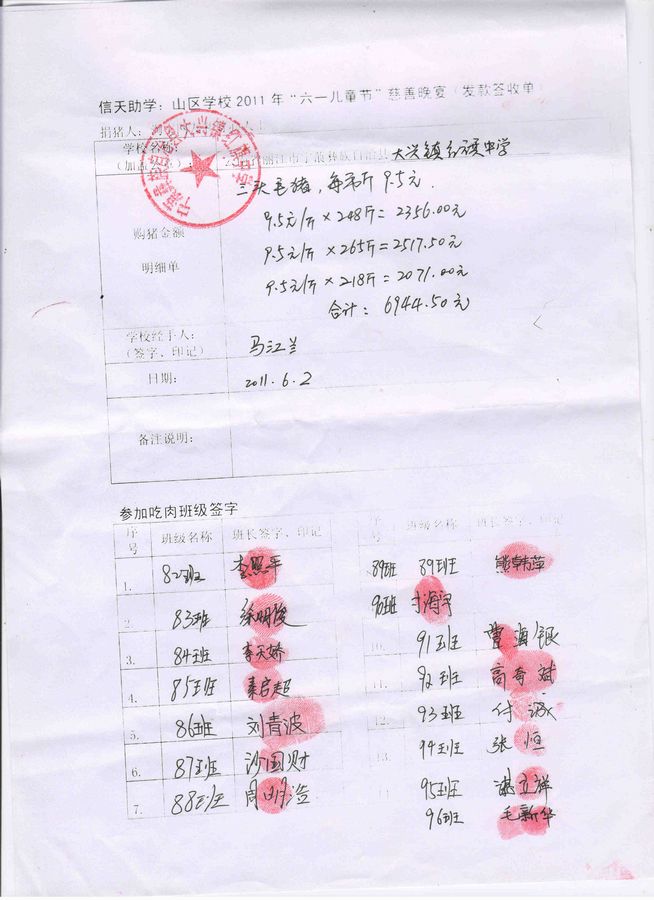 信天助学：山区学校2011年“六一儿童节”慈善晚宴（发款签收单）
捐猪人：
学校名称
（加盖公章）：
丽江市宁蒗彝族自治县大兴镇红旗中学
三头毛猪，每市斤9.5元.
购猪金额
明细单
9.5元/斤×248斤=2356.00元
9.5元/斤×265斤=2517.50元
9.5元/斤×218斤=2071.00元
合计：6944.50元
学校经手人：
（签字、印记）
马江兰
日期：
2011.6.2
备注说明：
参加吃肉班级签字
序号 班级名称 班长签字、印记
1. 82班 李照平
2. 83班 徐明俊
3. 84班 李天娇
4. 85班 秦启超
5. 86班 刘青波
6. 87班 沙国财
7. 88班 周明浩
序号 班级名称 班长签字、印记
89班 89班 熊韩萍
90班
91班 曹海银
11. 92班 高奇斌
12. 93班 付诚
13. 94班 张恒
95班 立祥
96班 毛新华